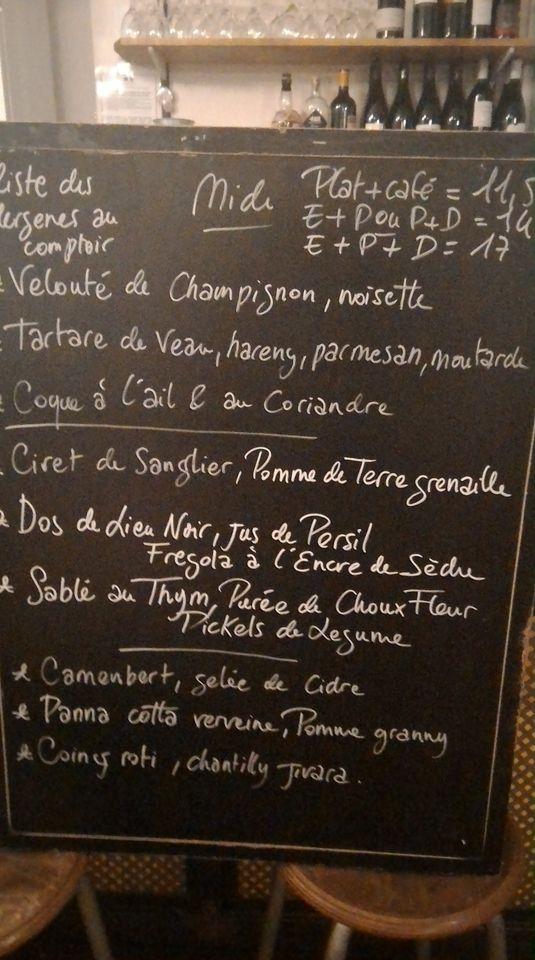 liste des
lergenes au
comptoir
Midi
Plat + café = 11,5
E + P ou P + D = 14
E + P + D = 17
* Velouté de Champignon, noisette
* Tartare de Veau, hareng, parmesan, moutarde
* Coque á l'ail & au Coriandre
* Civet de Sanglier, Pomme de Terre grenaille
* Dos de Lieu Noir, Jus de Persil
Fregola à l'Encre de Sèche
* Sablé au Thym, Purée de Choux Fleur
Pickels de Legume
* Camenbert, gelée de Cidre
* Panna cotta verveine, Pomme granny
* Coing roti, chantilly Jivara.